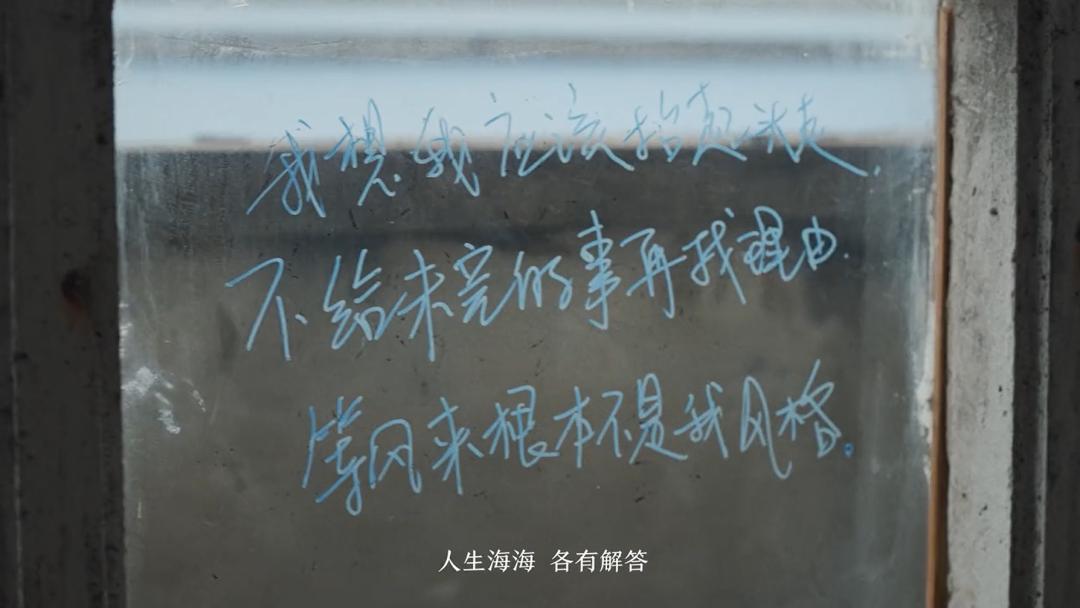 我想我应该抬起头.
不给未完的事再找理由.
等风来根本不是我风格.
人生海海 各有解答